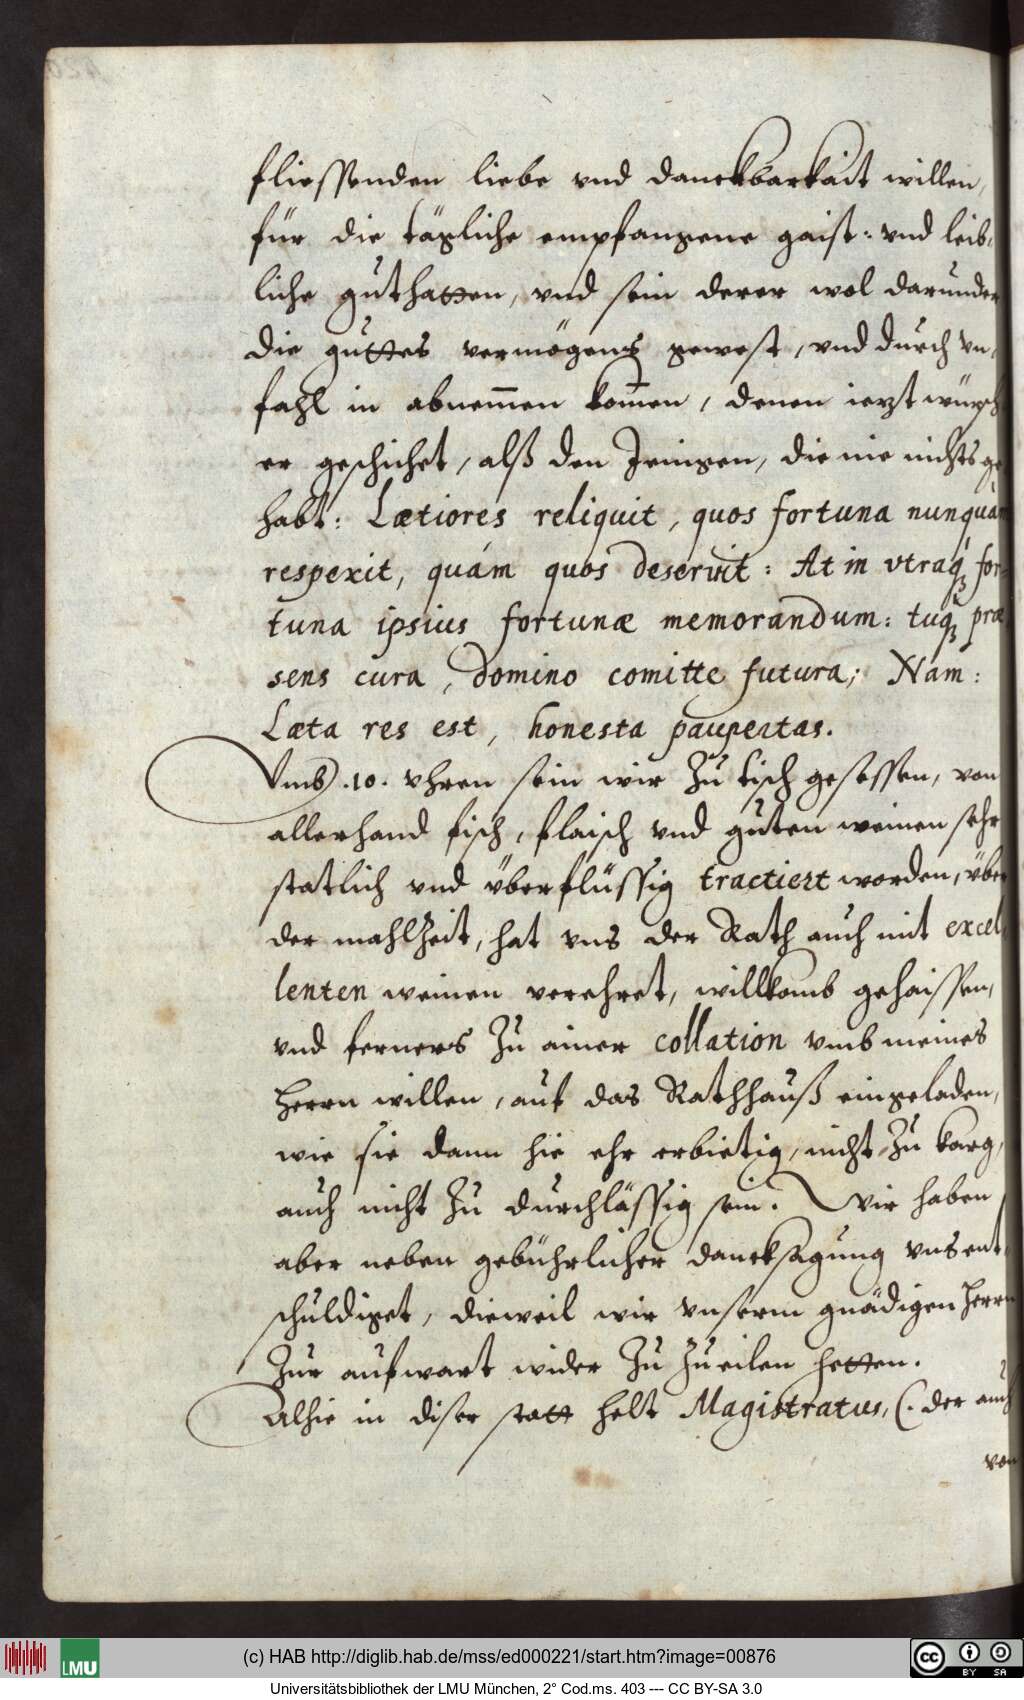 fliessenden liebe vnd danckbarkait willen,
für die tägliche empfangene gaist: vnd leib,
liche gutthatten, vnd sein derer wol darunder
die guttes vermögens gewest, vnd durch vn,
fahl in abnem̄en kom̄en, denen ietzt
er geschichet, alß den Jenigen, die nie nichts ge
habt: Lætiores reliquit, quos fortuna nunquàm
respexit, quàm quos deseruit: At in vtraq̨ for¬
tuna ipsius fortunæ memorandum: tuq̨ præ
sens cura, domino comitte futura; Nam:
Læta res est, honesta paupertas.
Vmb .10. vhren sein wir zu tisch gesessen, von
allerhand fisch, flaisch vnd guten weinen sehr
statlich vnd überflüssig tractiert worden, über
der mahlzeit, hat vns der Rath auch mit excel
lenten weinen verehret, willkomb gehaissen,
vnd ferners zu ainer collation vmb meines
herrn willen, auf das Rathhauß eingeladen,
wie sie dann hie ehr erbietig, nicht zu karg,
auch nicht zu durchlässig sein. Wir haben
aber neben gebührlicher dancksagung vns ent
schuldiget, dieweil wir vnserm gnädigen herrn
zur aufwart wider zu zu eilen hetten.
Alhie in diser statt helt Magistratus, (. der auch
von
(c) HAB http://diglib.hab.de/mss/ed000221/start.htm?image=00876
LMU
cc BY SA
Universitätsbibliothek der LMU München, 2° Cod.ms. 403 --- CC BY-SA 3.0